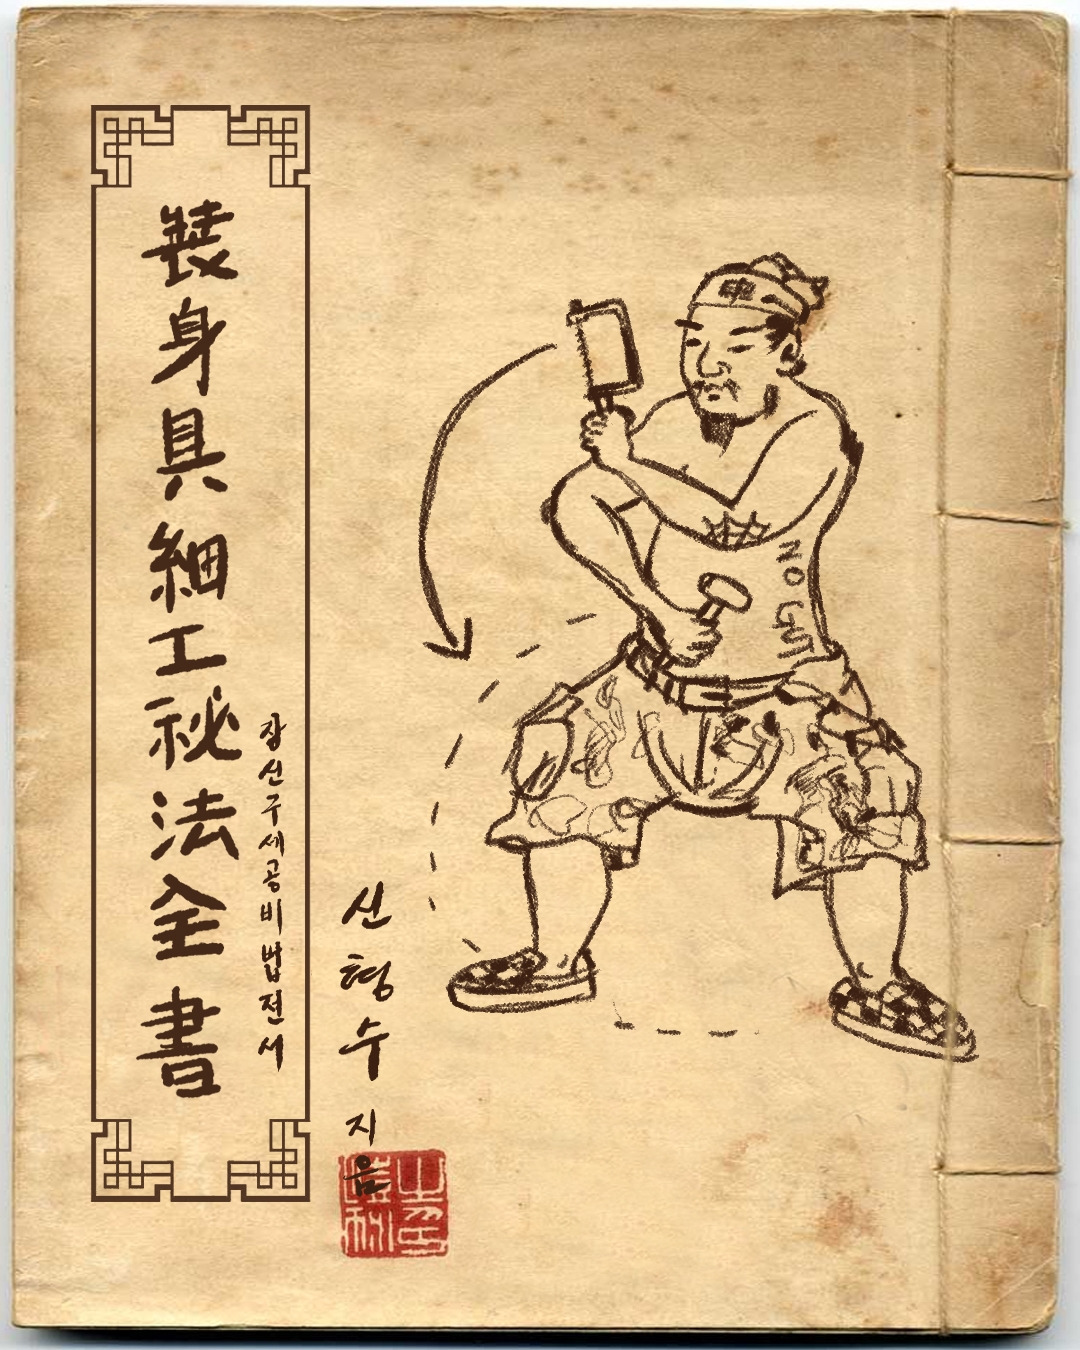 裝身具細工祕法全書
장신구세공비법전서
신형수 지음
申
NO GUT